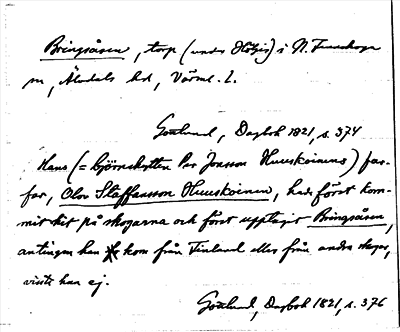 Bringsåsen, torp (under Höljes) i N. Finnskoga
sn, Älvdals hd, Värml. l.
Gottlund, Dagbok 1821, s. 374
Hans (= björnskytten Per Jonsson Huuskoinens) far-
far, Olov Staffansson Huuskoinen, hade först kom-
mit hit på skogarna och först upptagit Bringsåsen,
antingen han kom från Finland eller från andra skogar,
visste han ej.
Gottlund, Dagbok 1821, s. 376